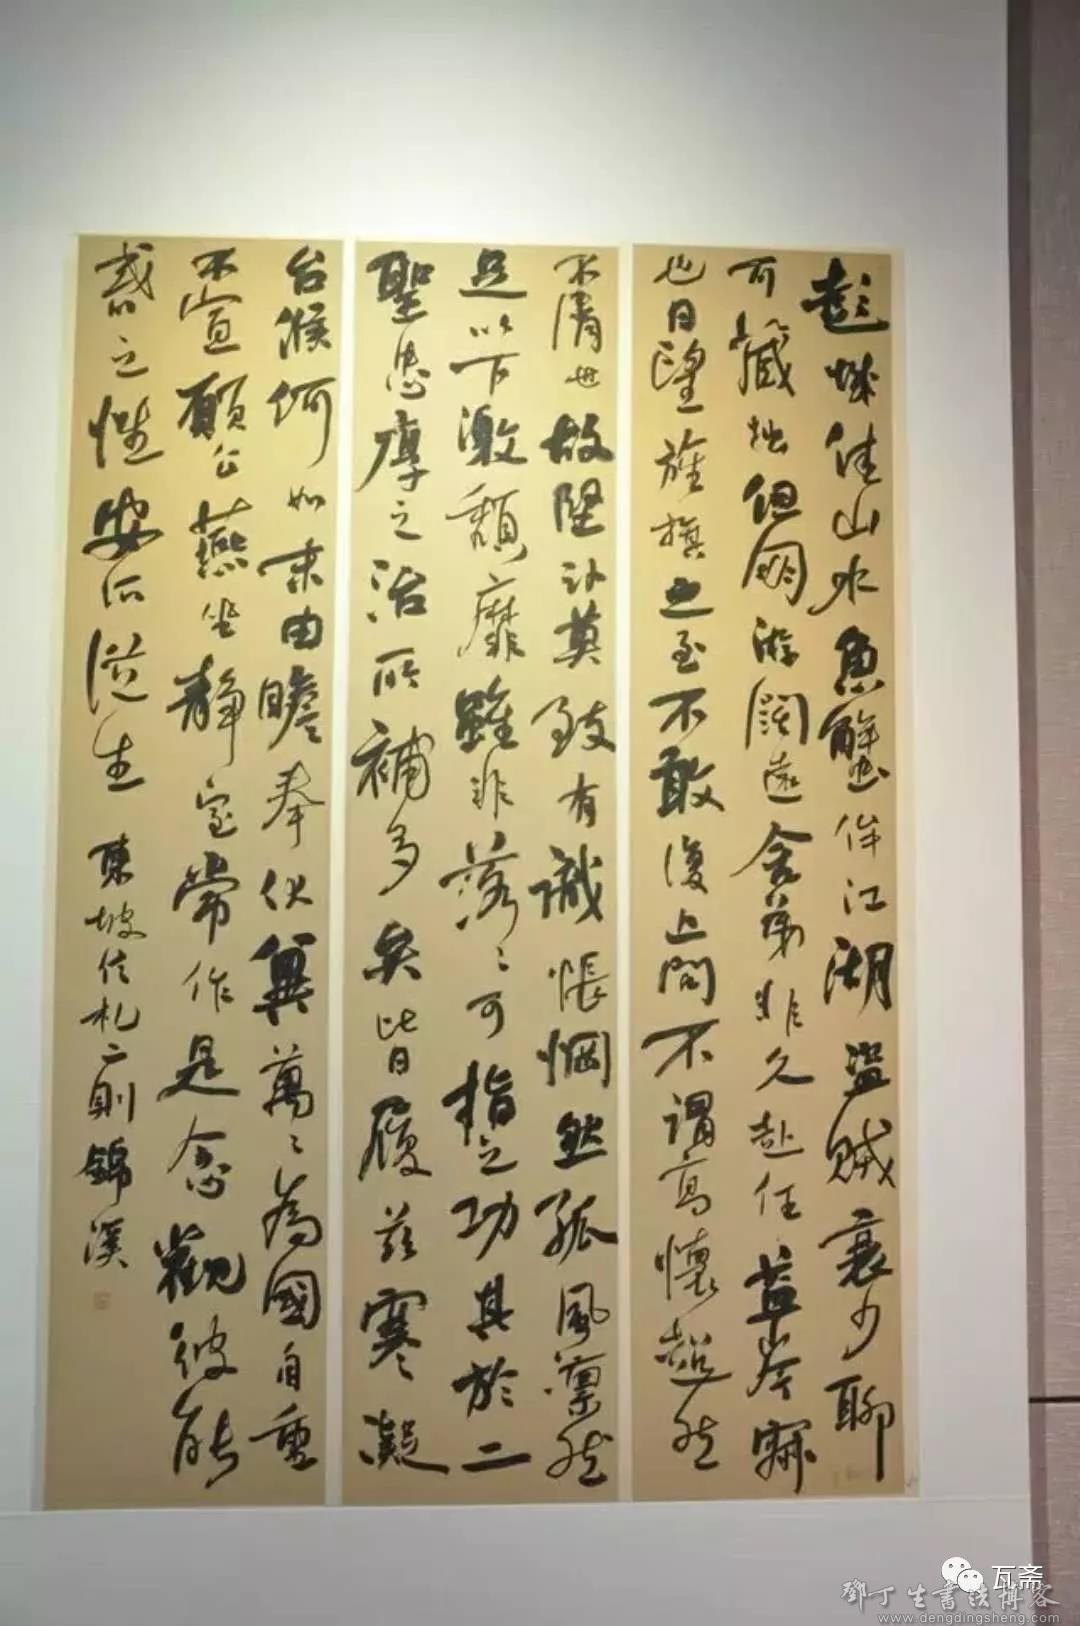 彭城佳山水魚蟹侔江湖盜賊衰少聊
可藏拙但朋游闊遠舍弟非久赴任益岑寂
也日望旌旗之至不敢復上問不謂高懷超然
不屑世故堅卧莫致有識悵惘然孤風凛然
足以下激頹靡雖非落〻可指之功其於二
聖忠厚之治所補多矣比日履兹寒凝
台候何如未由瞻奉伏冀萬〻為國自重
不宣願公燕坐静室常作是念觀彼能
惑之性安所從生 東坡信札二則錦溪
瓦斋
鄧丁生書法博客
www.dengdingsheng.com